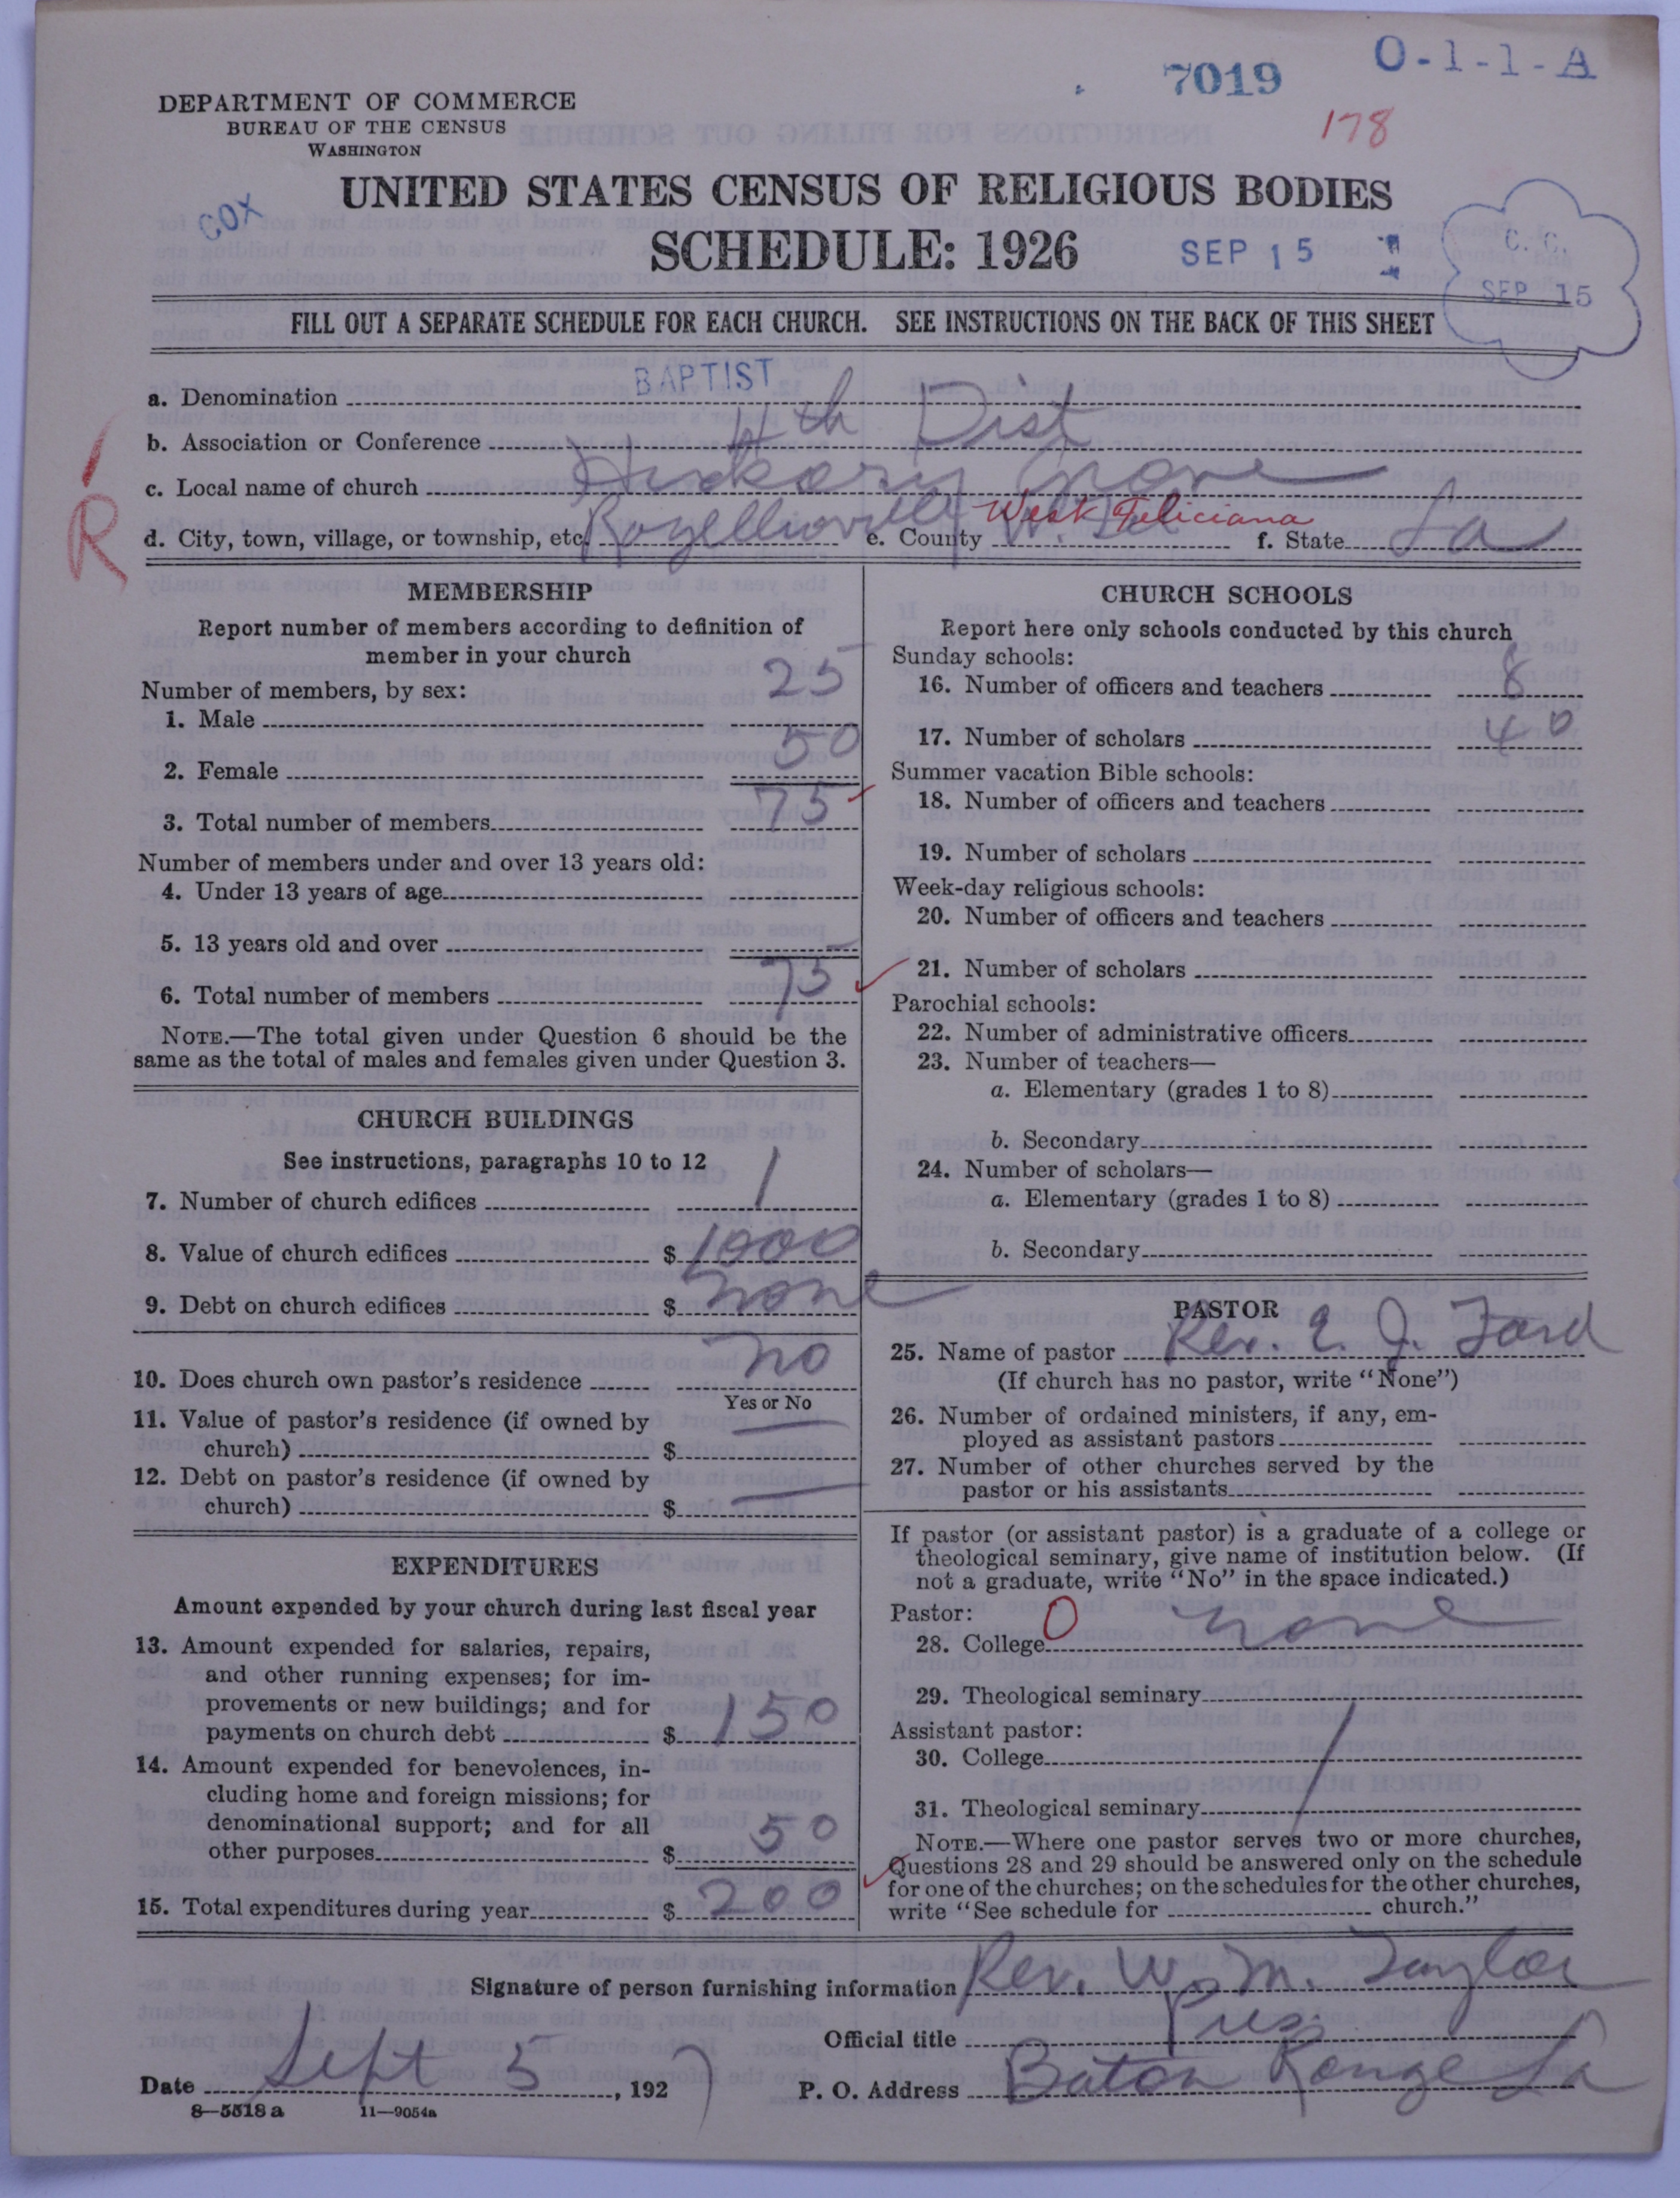 7019
O-1-1-A
178
DEPARTMENT OF COMMERCE
BUREAU OF THE CENSUS
WASHINGTON
UNITED STATES CENSUS OF RELIGIOUS BODIES
COX
SCHEDULE: 1926
SEP 15
C. C.
SEP 15
FILL OUT A SEPARATE SCHEDULE FOR EACH CHURCH. SEE INSTRUCTIONS ON THE BACK OF THIS SHEET
R
a. Denomination BAPTIST
b. Association or Conference 4th Dist
c. Local name of church Hickory Grove
d. City, town, village, or township, etc. e. County W. Fel West Feliciana f. State La
MEMBERSHIP
Report number of members according to definition of
member in your church
Number of members, by sex:
1. Male 25
2. Female 50
3. Total number of members 75
Number of members under and over 13 years old:
4. Under 13 years of age
5. 13 years old and over
6. Total number of members 75
NOTE.—The total given under Question 6 should be the
same as the total of males and females given under Question 3.
CHURCH BUILDINGS
See instructions, paragraphs 10 to 12
7. Number of church edifices 1
8. Value of church edifices $ 1000
9. Debt on church edifices $ none
10. Does church own pastor's residence no
Yes or No
11. Value of pastor's residence (if owned by
church) $ —
12. Debt on pastor's residence (if owned by
church) $ —
EXPENDITURES
Amount expended by your church during last fiscal year
13. Amount expended for salaries, repairs,
and other running expenses; for im-
provements or new buildings; and for
payments on church debt $ 150
14. Amount expended for benevolences, in-
cluding home and foreign missions; for
denominational support; and for all
other purposes $ 50
15. Total expenditures during year $ 200
CHURCH SCHOOLS
Report here only schools conducted by this church
Sunday schools:
16. Number of officers and teachers 8
17. Number of scholars 40
Summer vacation Bible schools:
18. Number of officers and teachers
19. Number of scholars
Week-day religious schools:
20. Number of officers and teachers
21. Number of scholars
Parochial schools:
22. Number of administrative officers
23. Number of teachers—
a. Elementary (grades 1 to 8)
b. Secondary
24. Number of scholars—
a. Elementary (grades 1 to 8)
b. Secondary
PASTOR
25. Name of pastor Rev. E. J. Ford
(If church has no pastor, write "None")
26. Number of ordained ministers, if any, em-
ployed as assistant pastors
27. Number of other churches served by the
pastor or his assistants
If pastor (or assistant pastor) is a graduate of a college or
theological seminary, give name of institution below. (If
not a graduate, write "No" in the space indicated.)
Pastor:
28. College O none
29. Theological seminary
Assistant pastor:
30. College
31. Theological seminary
NOTE.—Where one pastor serves two or more churches,
Questions 28 and 29 should be answered only on the schedule
for one of the churches; on the schedules for the other churches,
write "See schedule for church."
Signature of person furnishing information Rev. W. M. Taylor
Official title Pres
Date Sept 5, 1927 P. O. Address Baton Rouge La
8—5518 a 11—9054a